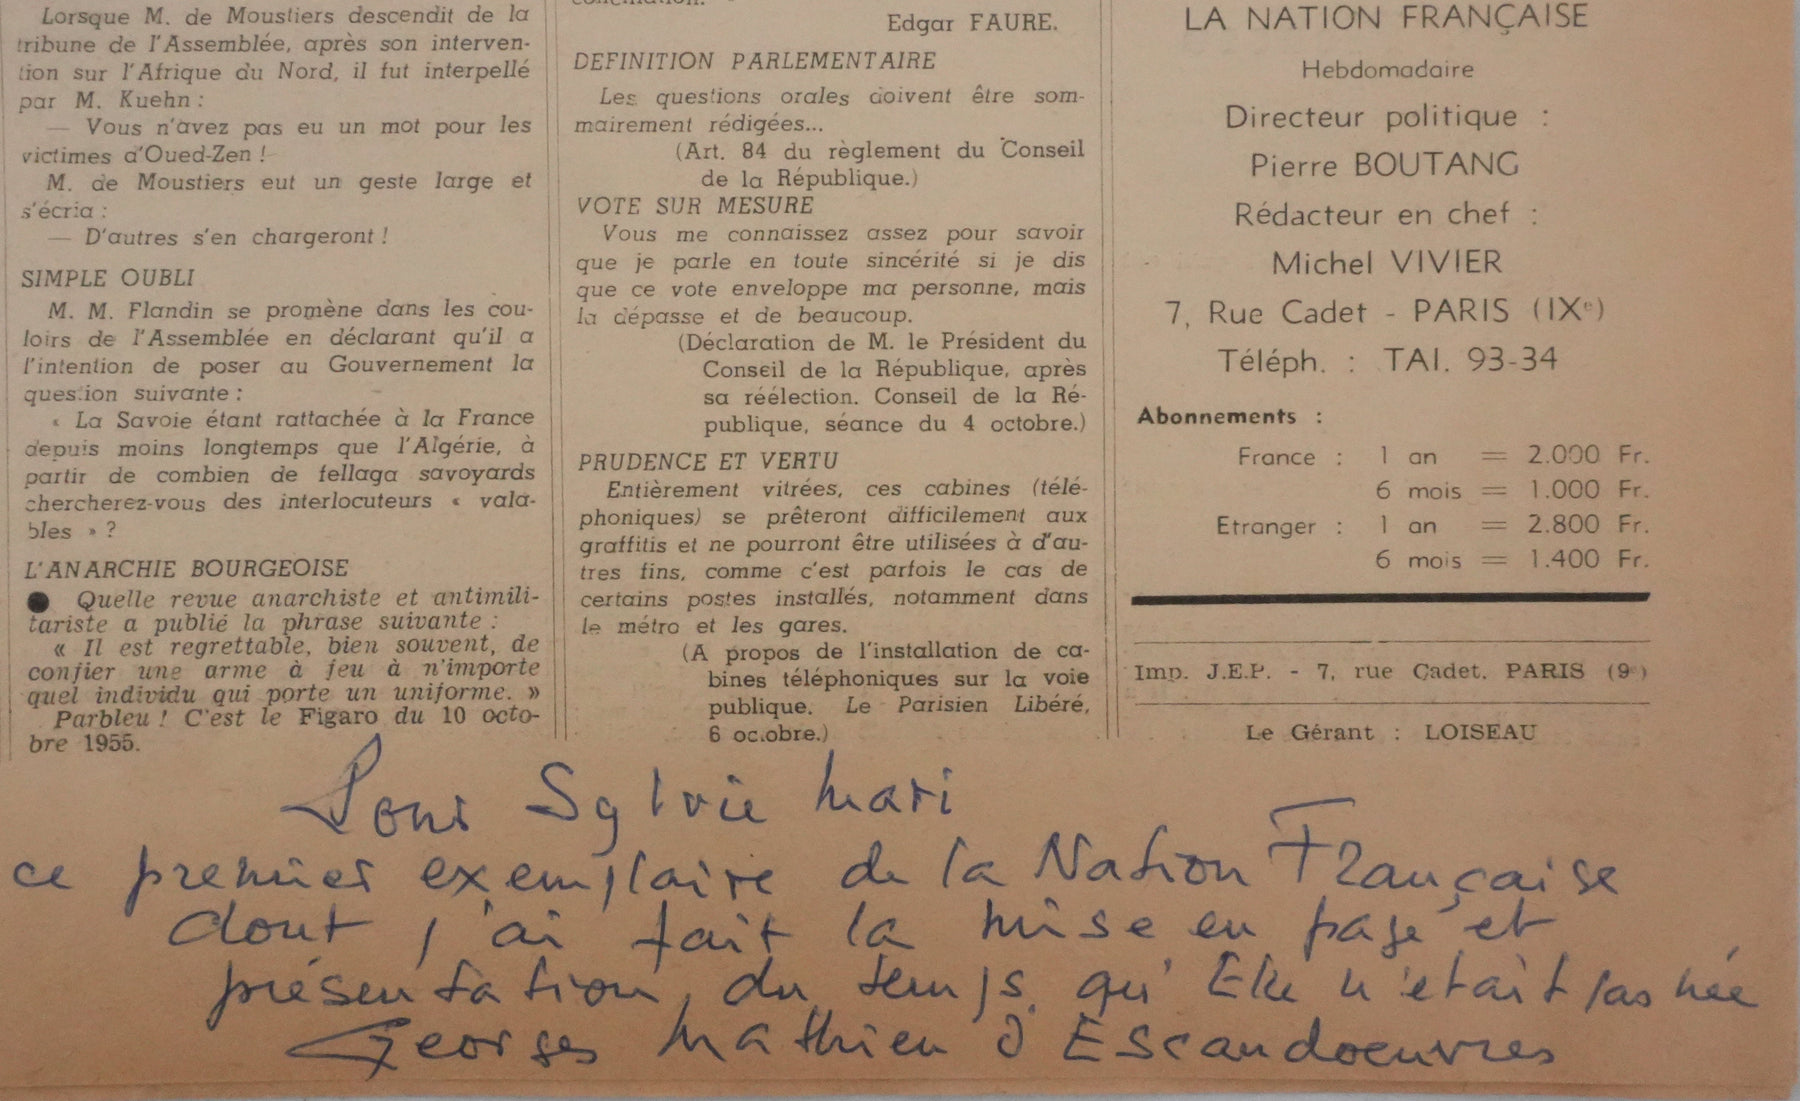 Lorsque M. de Moustiers descendit de la
tribune de l'Assemblée, après son interven-
tion sur l'Afrique du Nord, il fut interpellé
par M. Kuehn :
— Vous n'avez pas eu un mot pour les
victimes d'Oued-Zen !
M. de Moustiers eut un geste large et
s'écria :
— D'autres s'en chargeront !
SIMPLE OUBLI
M. M. Flandin se promène dans les cou-
loirs de l'Assemblée en déclarant qu'il a
l'intention de poser au Gouvernement la
question suivante :
« La Savoie étant rattachée à la France
depuis moins longtemps que l'Algérie, à
partir de combien de fellaga savoyards
chercherez-vous des interlocuteurs « vala-
bles » ?
L'ANARCHIE BOURGEOISE
● Quelle revue anarchiste et antimili-
tariste a publié la phrase suivante :
« Il est regrettable, bien souvent, de
confier une arme à feu à n'importe
quel individu qui porte un uniforme. »
Parbleu ! C'est le Figaro du 10 octo-
bre 1955.
Edgar FAURE.
DEFINITION PARLEMENTAIRE
Les questions orales doivent être som-
mairement rédigées...
(Art. 84 du règlement du Conseil
de la République.)
VOTE SUR MESURE
Vous me connaissez assez pour savoir
que je parle en toute sincérité si je dis
que ce vote enveloppe ma personne, mais
la dépasse et de beaucoup.
(Déclaration de M. le Président du
Conseil de la République, après
sa réélection. Conseil de la Ré-
publique, séance du 4 octobre.)
PRUDENCE ET VERTU
Entièrement vitrées, ces cabines (télé-
phoniques) se prêteront difficilement aux
graffitis et ne pourront être utilisées à d'au-
tres fins, comme c'est parfois le cas de
certains postes installés, notamment dans
le métro et les gares.
(A propos de l'installation de ca-
bines téléphoniques sur la voie
publique. Le Parisien Libéré,
6 octobre.)
LA NATION FRANÇAISE
Hebdomadaire
Directeur politique :
Pierre BOUTANG
Rédacteur en chef :
Michel VIVIER
7, Rue Cadet - PARIS (IXe)
Téléph. : TAI. 93-34
Abonnements :
France : 1 an = 2.000 Fr.
6 mois = 1.000 Fr.
Etranger : 1 an = 2.800 Fr.
6 mois = 1.400 Fr.
Imp. J.E.P. - 7, rue Cadet, PARIS (9e)
Le Gérant : LOISEAU
Pour Sylvie Mari
ce premier exemplaire de la Nation Française
dont j'ai fait la mise en page et
présentation, du temps qu'Elle n'était pas née
Georges Mathieu d'Escaudoeuvres